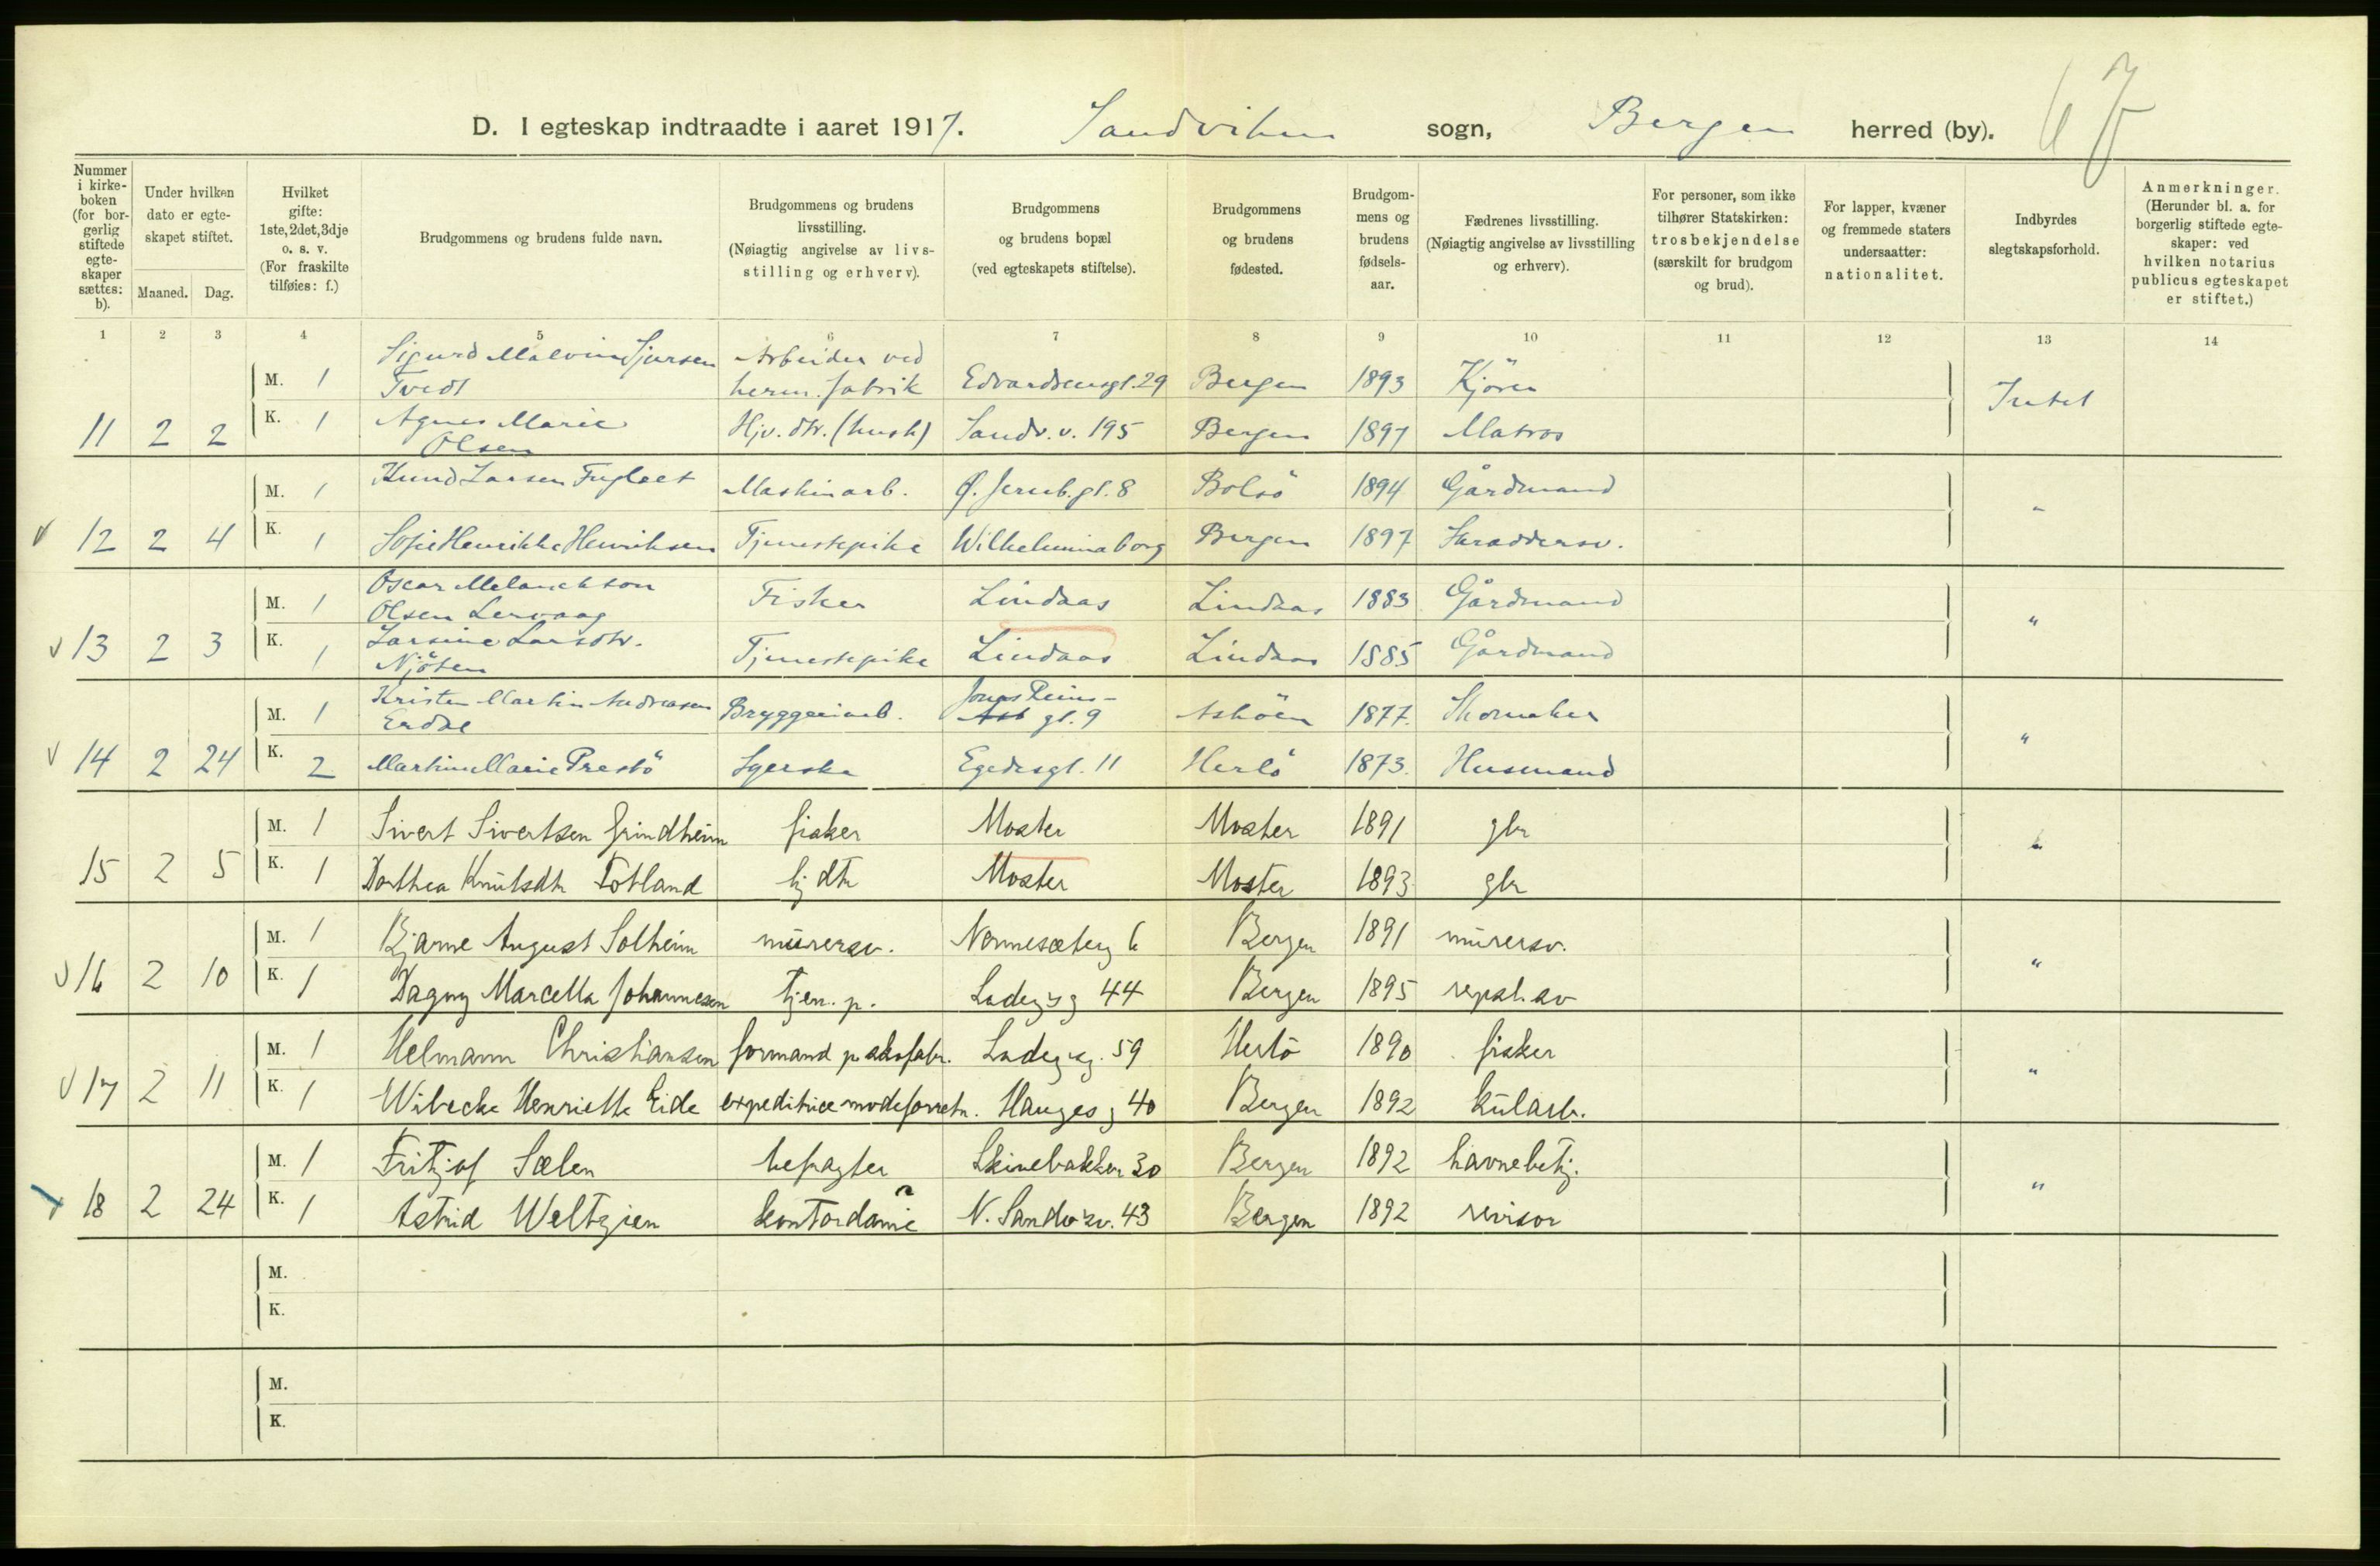 67
D. I egteskap indtraadte i aaret 1917. Sandviken sogn, Bergen herred (by).
Nummer i kirkeboken (for borgerlig stiftede egteskaper sættes: b).
Under hvilken dato er egteskapet stiftet.
Maaned. Dag.
Hvilket gifte: 1ste, 2det, 3dje o. s. v. (For fraskilte tilføies: f.)
Brudgommens og brudens fulde navn.
Brudgommens og brudens livsstilling. (Nøiagtig angivelse av livsstilling og erhverv).
Brudgommens og brudens bopæl (ved egteskapets stiftelse).
Brudgommens og brudens fødested.
Brudgommens og brudens fødselsaar.
Fædrenes livsstilling. (Nøiagtig angivelse av livsstilling og erhverv).
For personer, som ikke tilhører Statskirken: trosbekjendelse (særskilt for brudgom og brud).
For lapper, kvæner og fremmede staters undersaatter: nationalitet.
Indbyrdes slegtskapsforhold.
Anmerkninger. (Herunder bl. a. for borgerlig stiftede egteskaper: ved hvilken notarius publicus egteskapet er stiftet.)
1 2 3 4 5 6 7 8 9 10 11 12 13 14
M. 1 Sigurd Malvin Sjursen Tvedt Arbeider ved herm. fabrik Edvardsensgt. 29 Bergen 1893 Kjörer Intet
11 2 2 K. 1 Agnes Marie Olsen Hjv. dtr. (hush) Sandv. v. 195 Bergen 1897 Matros
M. 1 Knud Larsen Fuglset Maskinarb. Ø. Jernb. gt. 8 Bolsö 1894 Gårdmand "
12 2 4 K. 1 Sofie Henrikke Henriksen Tjenestepike Wilhelminaborg Bergen 1897 Skraddersv.
M. 1 Oscar Melanchton Olsen Lervaag Fisker Lindaas Lindaas 1883 Gårdmand "
13 2 3 K. 1 Larsine Larsdtr. Njöten Tjenestepike Lindaas Lindaas 1885 Gårdmand
M. 1 Kristen Martin Andreasen Erdal Bryggeriarb. Jonas Reinsgt. 9 Asköen 1877. Skomaker "
14 2 24 K. 2 Martine Marie Prestö Syerske Egedesgt. 11 Herlö 1873. Husmand
M. 1 Sivert Sivertsen Grindheim fisker Moster Moster 1891 gbr "
15 2 5 K. 1 Dorthea Knutsdtr Totland hj dtr Moster Moster 1893 gbr
M. 1 Bjarne August Solheim murersv. Nonnesæterg 6 Bergen 1891 murersv. "
16 2 10 K. 1 Dagny Marcella Johannesen tjen. p. Ladegsg 44 Bergen 1895 repsl. sv
M. 1 Helmann Christiansen formand p skofabr. Ladegsg. 59 Herlö 1890 fisker "
17 2 11 K. 1 Wibecke Henriette Eide expeditrice modeforretn. Hauges g 40 Bergen 1892 kularb.
M. 1 Fritjof Sælen befragter Skivebakken 30 Bergen 1892 havnebetj. "
18 2 24 K. 1 Astrid Weltzien kontordame N. Sandvsv. 43 Bergen 1892 revisor
M.
K.
M.
K.